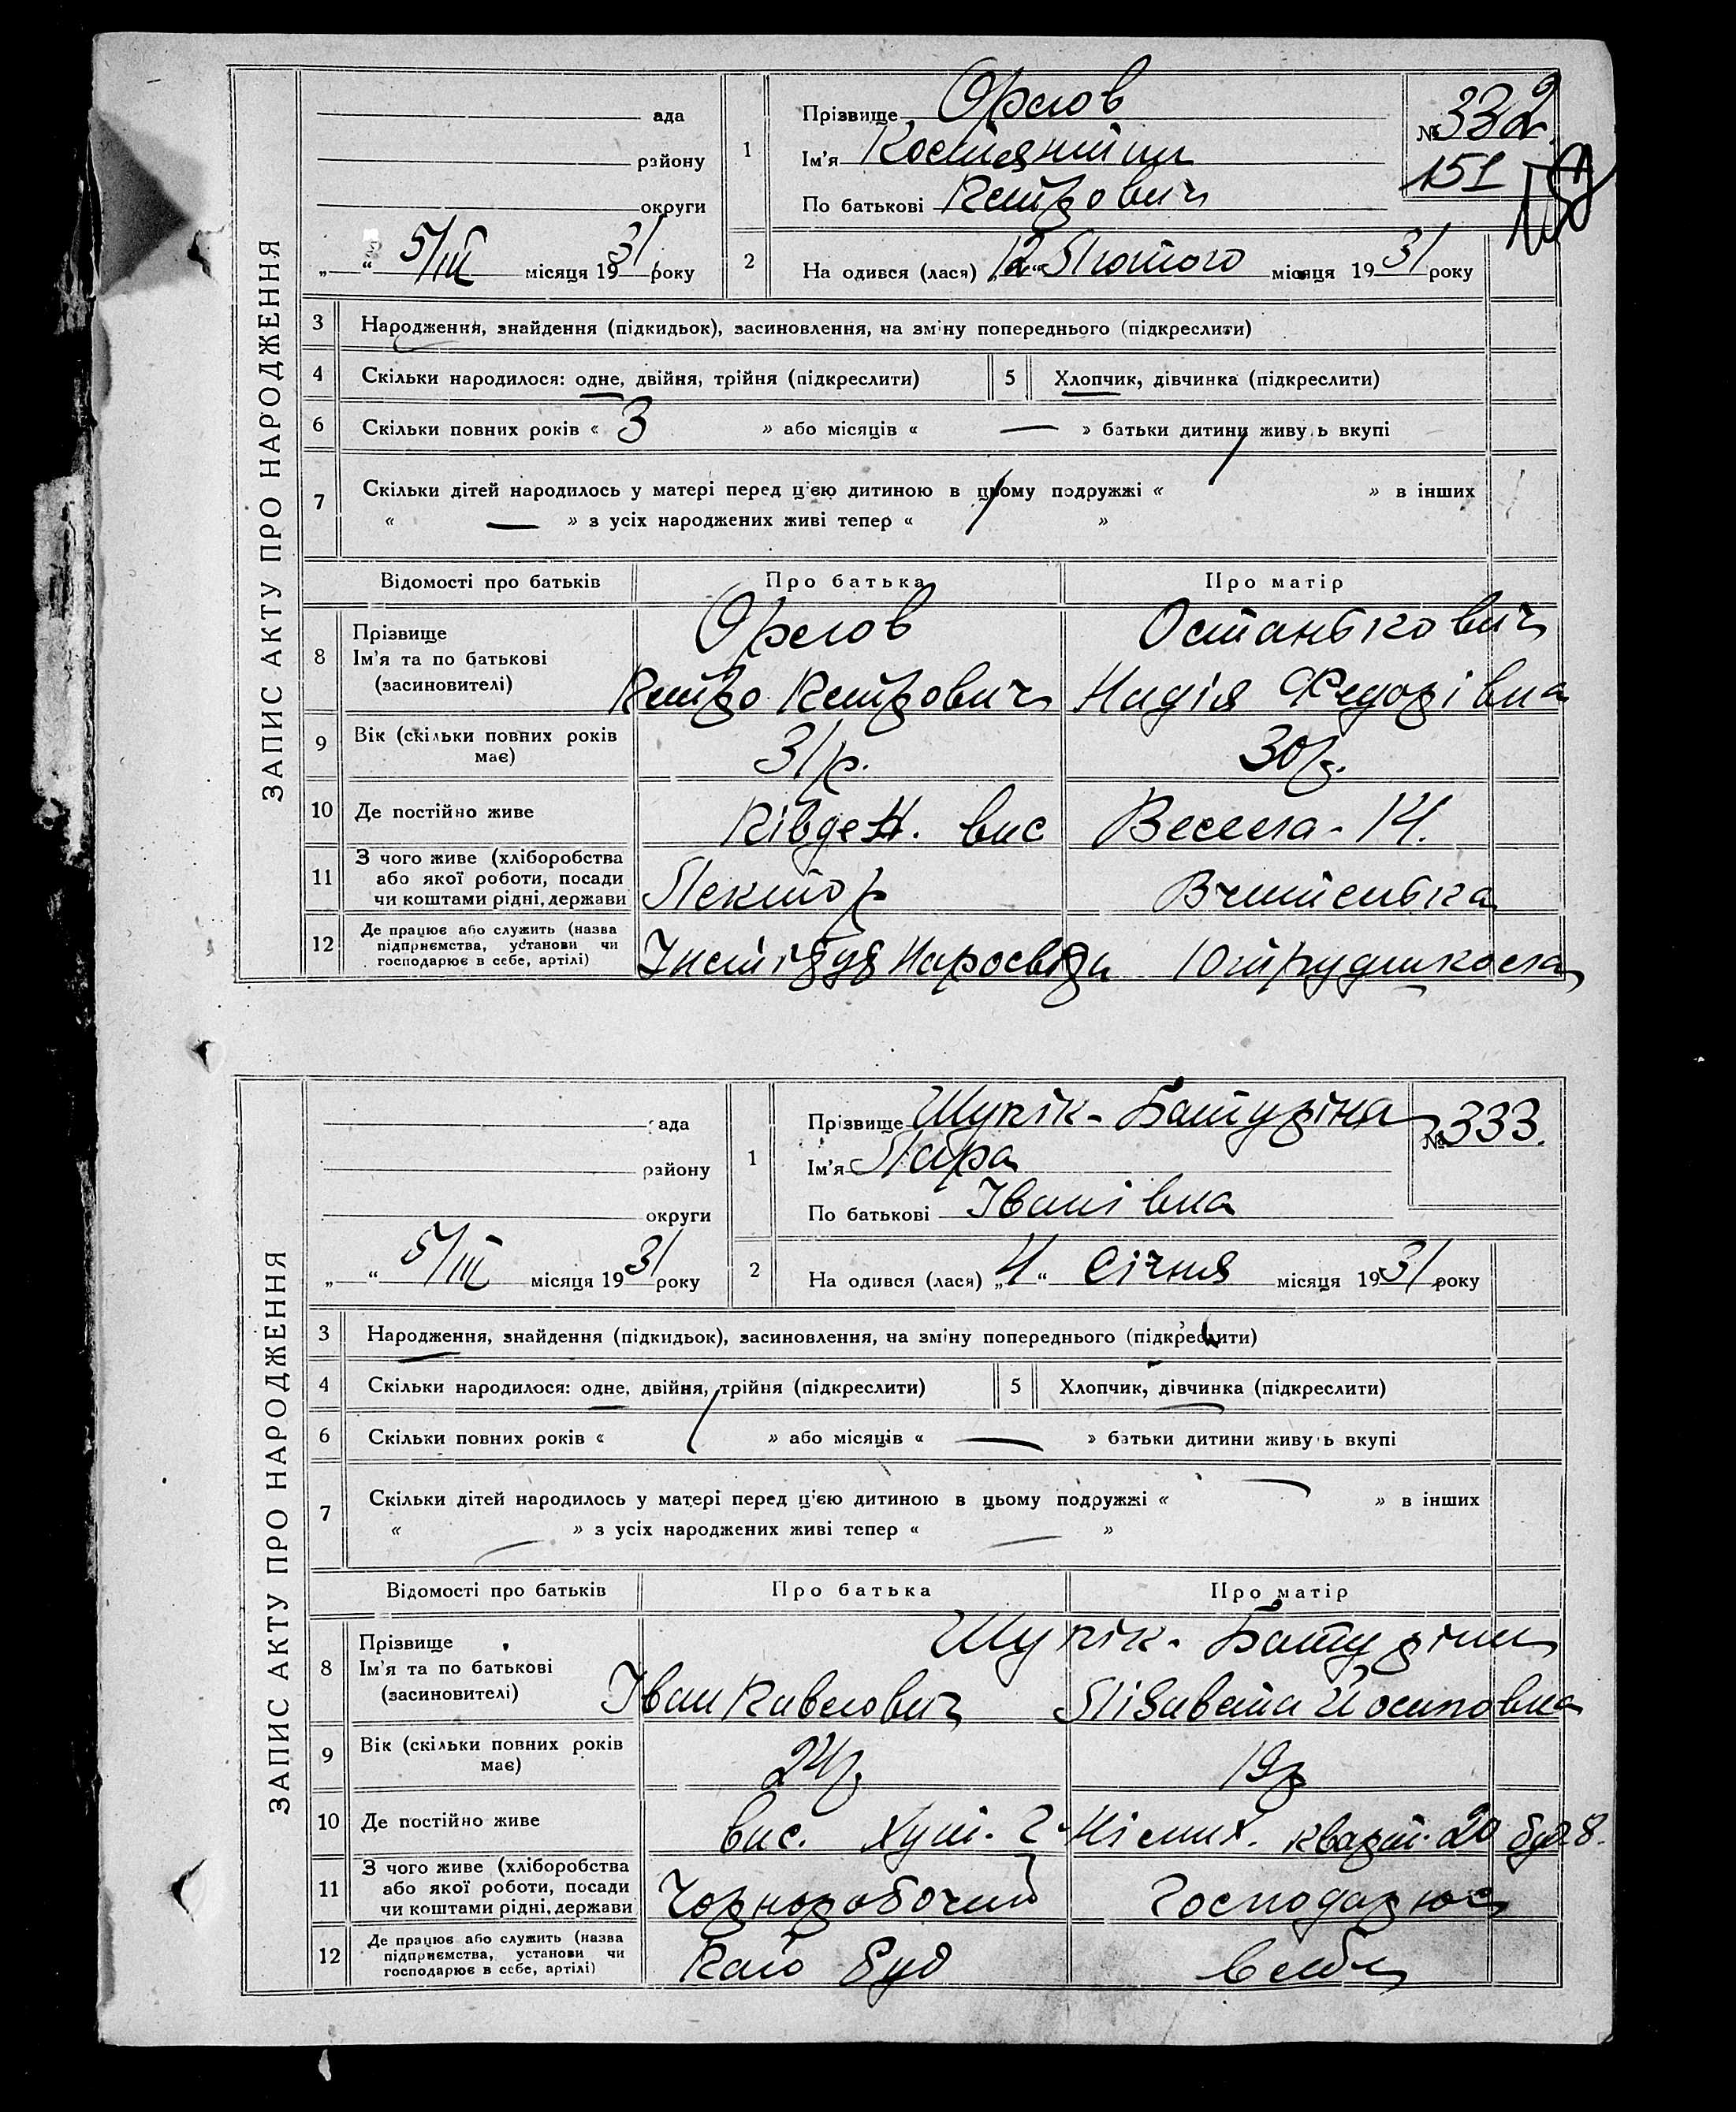 ЗАПИС АКТУ ПРО НАРОДЖЕННЯ
ада
району
округи
„ “ 5/III місяця 1931 року
1
Прізвище Орлов
Ім'я Костянтин
По батькові Петрович
№ 332
151
2
На одився (лася) „12“ Лютого місяця 1931 року
3 Народження, знайдення (підкидьок), засиновлення, на зміну попереднього (підкреслити)
4 Скільки народилося: одне, двійня, трійня (підкреслити)
5 Хлопчик, дівчинка (підкреслити)
6 Скільки повних років « 3 » або місяців « — » батьки дитини живуть вкупі
7 Скільки дітей народилось у матері перед ц'єю дитиною в цьому подружжі « 1 » в інших
« — » з усіх народжених живі тепер « 1 »
Відомості про батьків Про батька Про матір
8 Прізвище Орлов Останькович
Ім'я та по батькові
(засиновителі) Петро Петрович Надія Федорівна
9 Вік (скільки повних років має) 31 р. 30 р.
10 Де постійно живе Півден. вис Весела - 14.
11 З чого живе (хліборобства
або якої роботи, посади
чи коштами рідні, держави Лектор Вчителька
12 Де працює або служить (назва
підприємства, установи чи
господарює в себе, артілі) Наросвіти
ЗАПИС АКТУ ПРО НАРОДЖЕННЯ
ада
району
округи
„ “ 5/III місяця 1931 року
1
Прізвище Шупік-Батуріна
Ім'я Лара
По батькові Іванівна
№ 333.
2
На одився (лася) „4“ Січня місяця 1931 року
3 Народження, знайдення (підкидьок), засиновлення, на зміну попереднього (підкреслити)
4 Скільки народилося: одне, двійня, трійня (підкреслити)
5 Хлопчик, дівчинка (підкреслити)
6 Скільки повних років « 1 » або місяців « — » батьки дитини живуть вкупі
7 Скільки дітей народилось у матері перед ц'єю дитиною в цьому подружжі « — » в інших
« — » з усіх народжених живі тепер « — »
Відомості про батьків Про батька Про матір
8 Прізвище Шупік-Батуріни
Ім'я та по батькові
(засиновителі) Іван Павлович Лізавета Йосиповна
9 Вік (скільки повних років має) 24 р. 19 р
10 Де постійно живе вис. Хут. 2. кварт. 20 буд 8.
11 З чого живе (хліборобства
або якої роботи, посади
чи коштами рідні, держави Чорноробочий Господарює
12 Де працює або служить (назва
підприємства, установи чи
господарює в себе, артілі) буд в себе